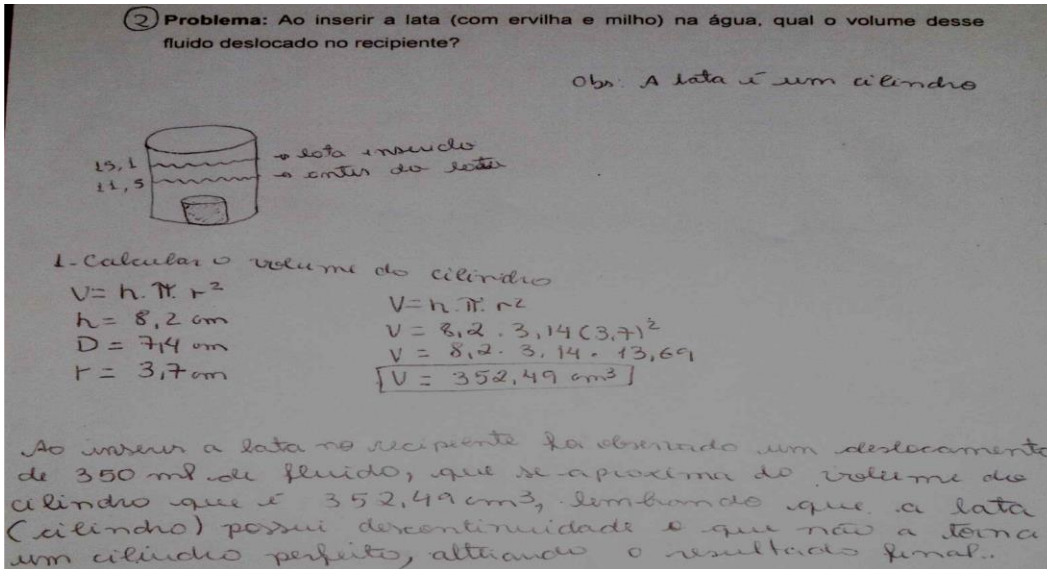 ② Problema: Ao inserir a lata (com ervilha e milho) na água, qual o volume desse
fluido deslocado no recipiente?
Obs: A lata é um cilindro
15,1 → lata inserida
11,5 → antes da lata
1- Calcular o volume do cilindro
V = h. π. r²
h = 8,2 cm
D = 7,4 cm
r = 3,7 cm
V = h. π. r²
V = 8,2 . 3,14 (3,7)²
V = 8,2. 3,14. 13,69
V = 352,49 cm³
Ao inserir a lata no recipiente foi observado um deslocamento
de 350 ml de fluido, que se aproxima do volume do
cilindro que é 352,49 cm³, lembrando que a lata
(cilindro) possui descontinuidade o que não a torna
um cilindro perfeito, alterando o resultado final..